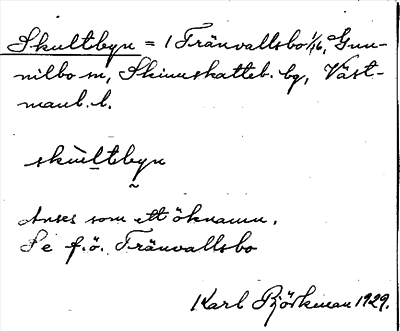 Skultbyn = 1 Tränvallsbo 1/16, Gun-
nilbo sn, Skinnskatteb. bg, Väst-
manl. l.
skùltebyn
Anses som ett öknamn.
Se f.ö. Tränvallsbo
Karl Björkman 1929.